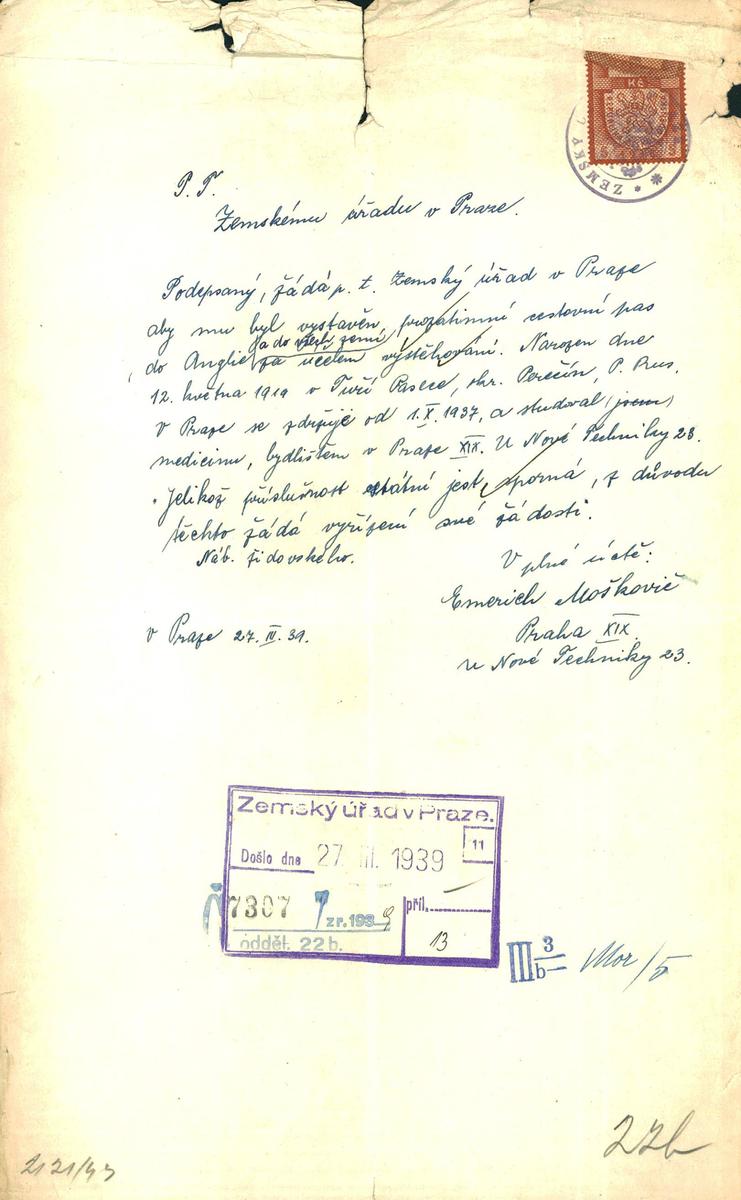 Kč
ZEMSKÝ
P. T.
Zemskému úřadu v Praze.
Podepsaný, žádá p. t. Zemský úřad v Praze
aby mu byl vystavěn, prozatimní cestovní pas
a do všech zemí
do Anglie, za účelem vystěhování. Narozen dne
12. května 1919 v Tuří Pasece, okr. Perečín, P. Rus.
V Praze se zdržuje od 1.X.1937, a studoval (jsem)
medicinu, bydlištěm v Praze XIX. U Nové Techniky 23.
Jelikož příslušnost státní jest sporná, z důvodu
těchto žádá vyřízení své žádosti.
Náb. židovského.
V plné úctě:
Emerich Moškovič
Praha XIX.
u Nové Techniky 23.
v Praze 27. III. 39.
Zemský úřad v Praze.
11
Došlo dne 27. III. 1939
Č 7307 7 z r. 1939
příl.
oddět. 22 b.
13
III 3
b
Mor/5
22b